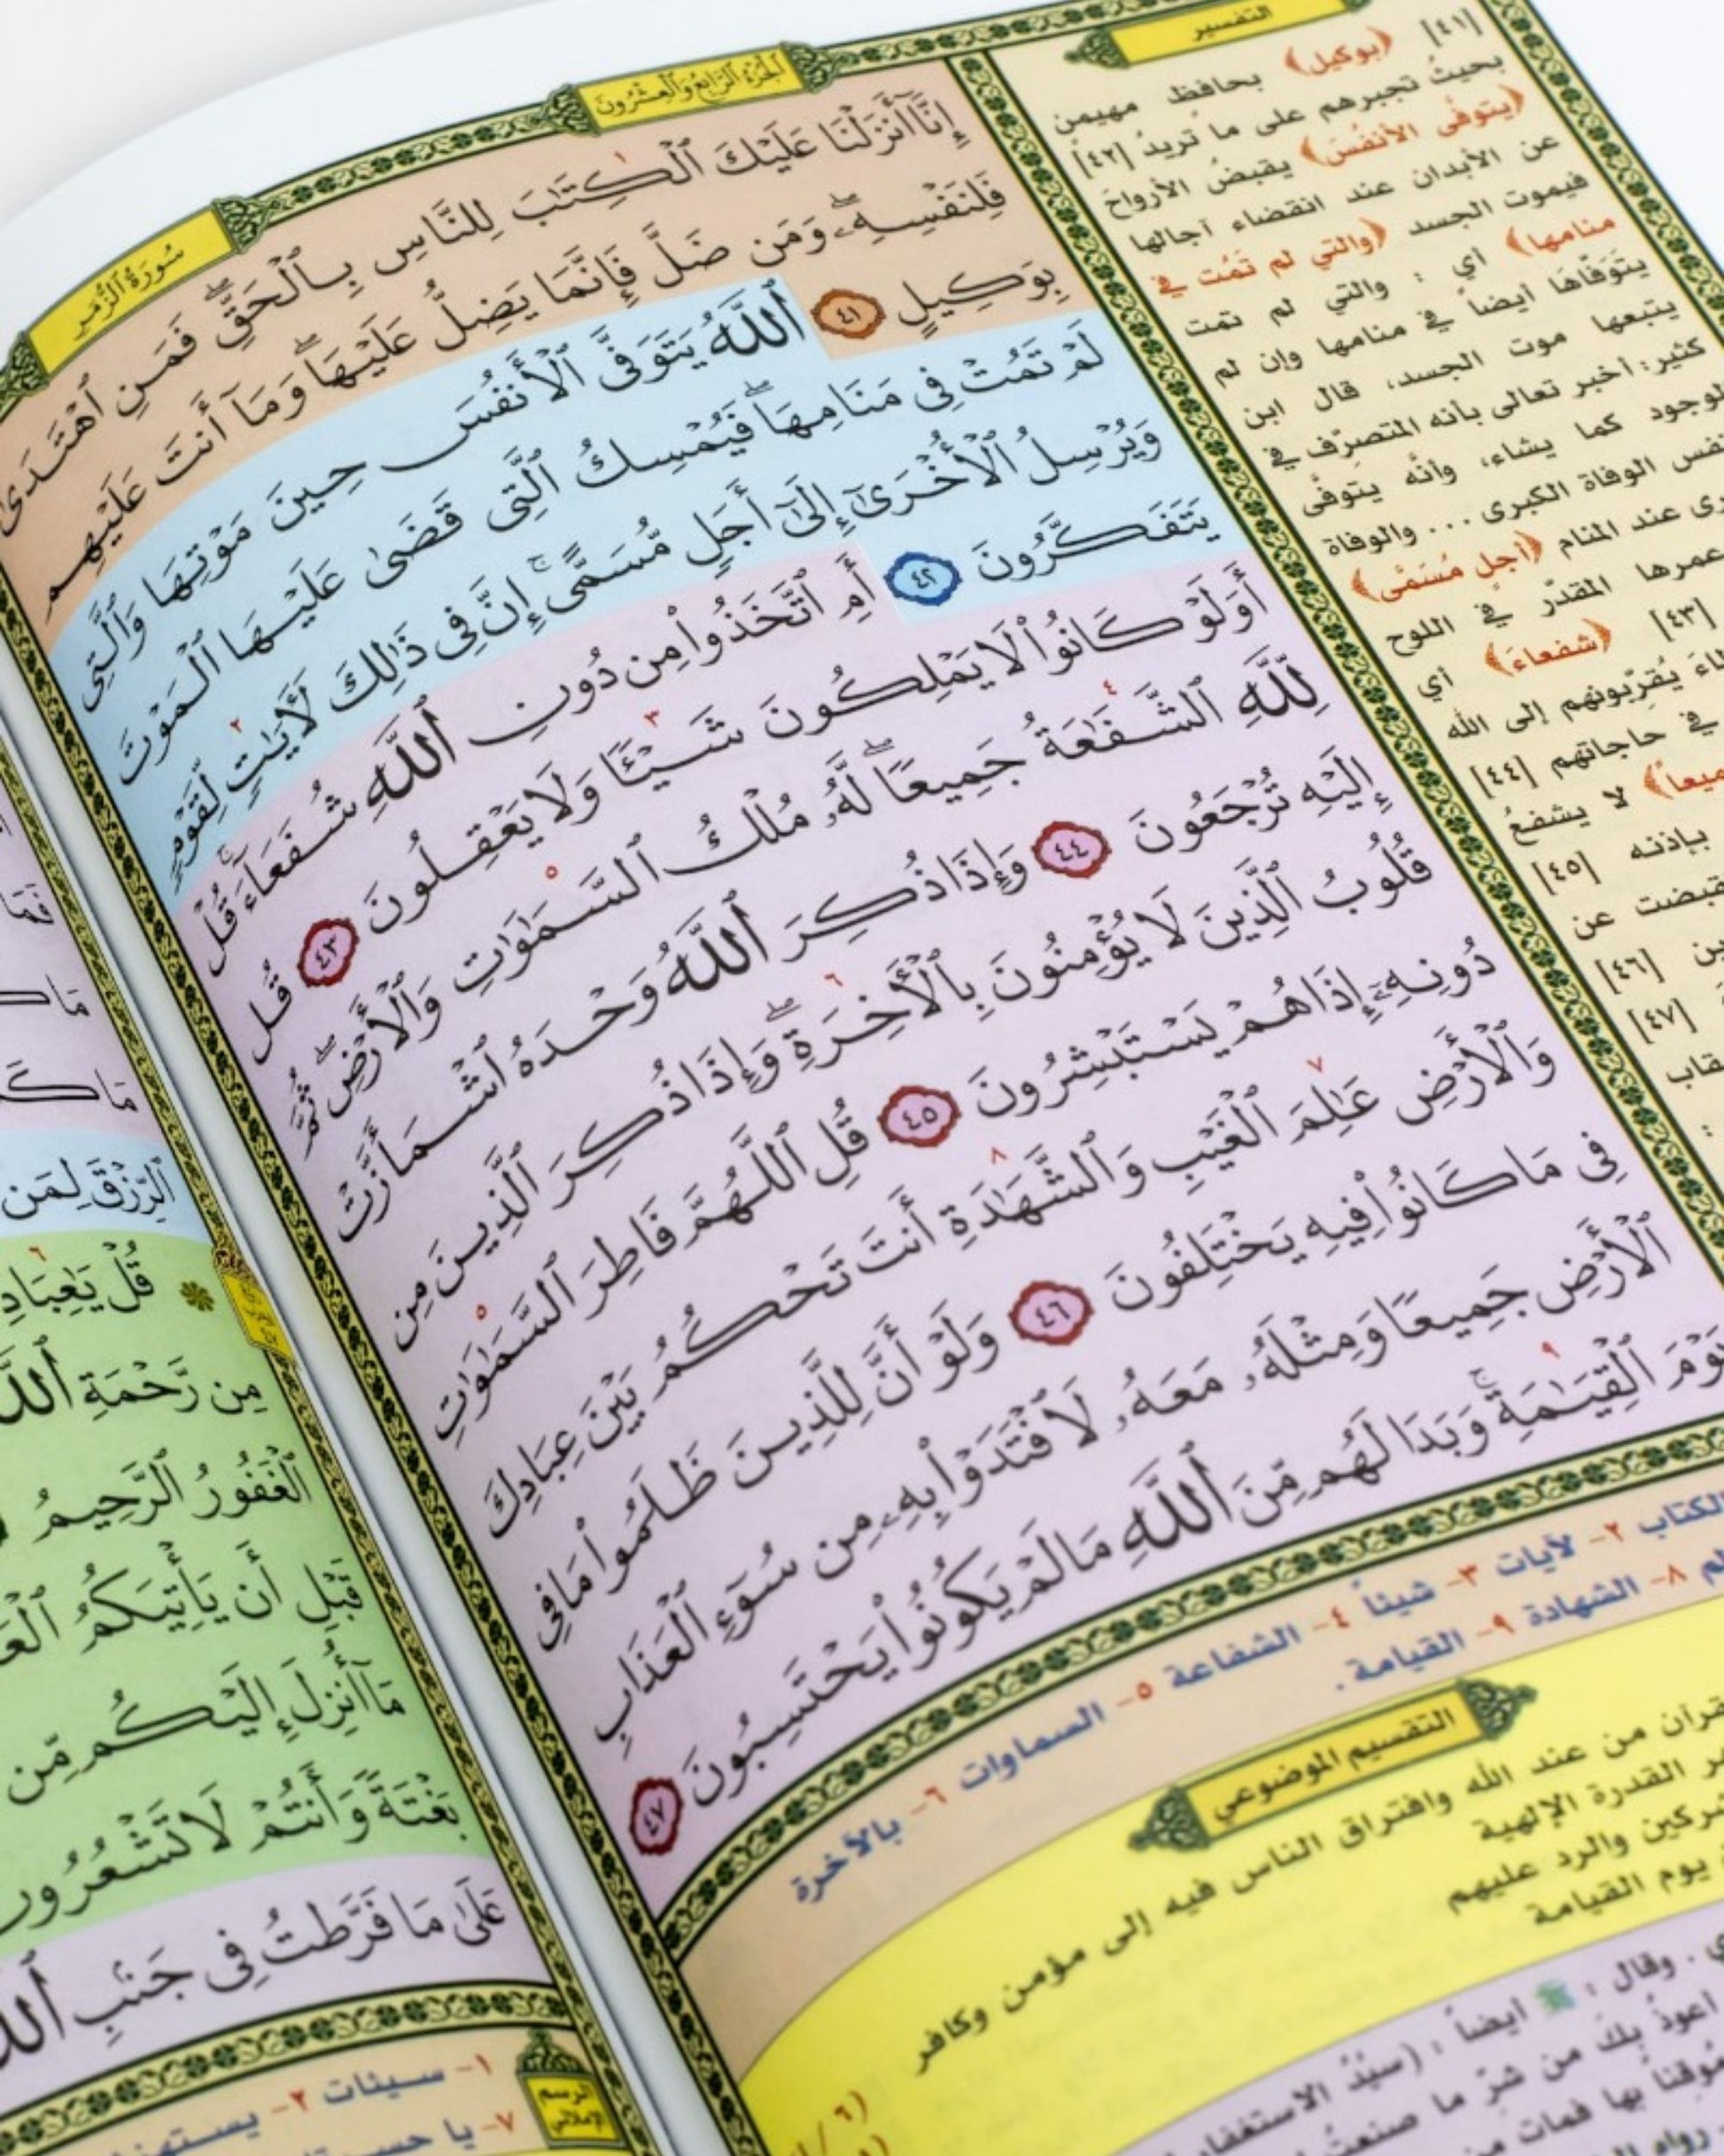 سُورَةُ الزُّمَرِ
الجُزْءُ الرَّابِعُ وَالعِشْرُونَ
التفسير
إِنَّآ أَنزَلْنَا عَلَيْكَ ٱلْكِتَٰبَ لِلنَّاسِ بِٱلْحَقِّ ۖ فَمَنِ ٱهْتَدَىٰ
فَلِنَفْسِهِۦ ۖ وَمَن ضَلَّ فَإِنَّمَا يَضِلُّ عَلَيْهَا ۖ وَمَآ أَنتَ عَلَيْهِم
بِوَكِيلٍ ٤١ ٱللَّهُ يَتَوَفَّى ٱلْأَنفُسَ حِينَ مَوْتِهَا وَٱلَّتِى
لَمْ تَمُتْ فِى مَنَامِهَا ۖ فَيُمْسِكُ ٱلَّتِى قَضَىٰ عَلَيْهَا ٱلْمَوْتَ
وَيُرْسِلُ ٱلْأُخْرَىٰٓ إِلَىٰٓ أَجَلٍ مُّسَمًّى ۚ إِنَّ فِى ذَٰلِكَ لَءَايَٰتٍ لِّقَوْمٍ
يَتَفَكَّرُونَ ٤٢ أَمِ ٱتَّخَذُوا۟ مِن دُونِ ٱللَّهِ شُفَعَآءَ ۚ قُلْ
أَوَلَوْ كَانُوا۟ لَا يَمْلِكُونَ شَيْـًٔا وَلَا يَعْقِلُونَ ٤٣ قُل
لِّلَّهِ ٱلشَّفَٰعَةُ جَمِيعًا ۖ لَّهُۥ مُلْكُ ٱلسَّمَٰوَٰتِ وَٱلْأَرْضِ ۖ ثُمَّ
إِلَيْهِ تُرْجَعُونَ ٤٤ وَإِذَا ذُكِرَ ٱللَّهُ وَحْدَهُ ٱشْمَأَزَّتْ
قُلُوبُ ٱلَّذِينَ لَا يُؤْمِنُونَ بِٱلْءَاخِرَةِ ۖ وَإِذَا ذُكِرَ ٱلَّذِينَ مِن
دُونِهِۦٓ إِذَا هُمْ يَسْتَبْشِرُونَ ٤٥ قُلِ ٱللَّهُمَّ فَاطِرَ ٱلسَّمَٰوَٰتِ
وَٱلْأَرْضِ عَٰلِمَ ٱلْغَيْبِ وَٱلشَّهَٰدَةِ أَنتَ تَحْكُمُ بَيْنَ عِبَادِكَ
فِى مَا كَانُوا۟ فِيهِ يَخْتَلِفُونَ ٤٦ وَلَوْ أَنَّ لِلَّذِينَ ظَلَمُوا۟ مَا فِى
ٱلْأَرْضِ جَمِيعًا وَمِثْلَهُۥ مَعَهُۥ لَٱفْتَدَوْا۟ بِهِۦ مِن سُوٓءِ ٱلْعَذَابِ
يَوْمَ ٱلْقِيَٰمَةِ ۚ وَبَدَا لَهُم مِّنَ ٱللَّهِ مَا لَمْ يَكُونُوا۟ يَحْتَسِبُونَ ٤٧
[٤١] ﴿بوكيل﴾ بحافظ مهيمن
بحيثُ تجبرهم على ما تريدُ [٤٢]
﴿يتوفَّى الأنفُسَ﴾ يقبضُ الأرواحَ
عن الأبدان عند انقضاء آجالها
فيموت الجسد ﴿والتي لم تَمُت في
منامها﴾ أي : والتي لم تمت
يتوَفّاها أيضاً في منامها وإن لم
يتبعها موت الجسد، قال ابن
كثير: أخبر تعالى بأنه المتصرِّف في
الوجود كما يشاء، وأنَّه يتوفَّى
الوفاة الكبرى ... والوفاة
عند المنام ﴿أجلٍ مُسَمًّى﴾
عمرها المقدّر في اللوح
[٤٣] ﴿شفعاءَ﴾ أي
يُقرّبونهم إلى الله
في حاجاتهم [٤٤]
لا يشفعُ
بإذنه [٤٥]
عن
[٤٦]
[٤٧]
الكتاب ٢- لآيات ٣- شيئاً ٤- الشفاعة ٥- السماوات ٦- بالآخرة
٨- الشهادة ٩- القيامة .
التقسيم الموضوعي
من عند الله وافتراق الناس فيه إلى مؤمن وكافر
القدرة الإلهية
والرد عليهم
يوم القيامة
وقال : ﷺ أيضاً : (سيّدُ الاستغفار
أعوذُ بكَ من شرّ ما صنعتُ
بها فمات
ٱلرِّزْقَ لِمَن
قُلْ يَٰعِبَادِ
مِن رَّحْمَةِ ٱللَّهِ
ٱلْغَفُورُ ٱلرَّحِيمُ
قَبْلِ أَن يَأْتِيَكُمُ
مَآ أُنزِلَ إِلَيْكُم مِّن
بَغْتَةً وَأَنتُمْ لَا تَشْعُرُونَ
عَلَىٰ مَا فَرَّطتُ فِى جَنۢبِ ٱللَّهِ
الرسم الإملائي
١- سيئات ٢-
٧- يا